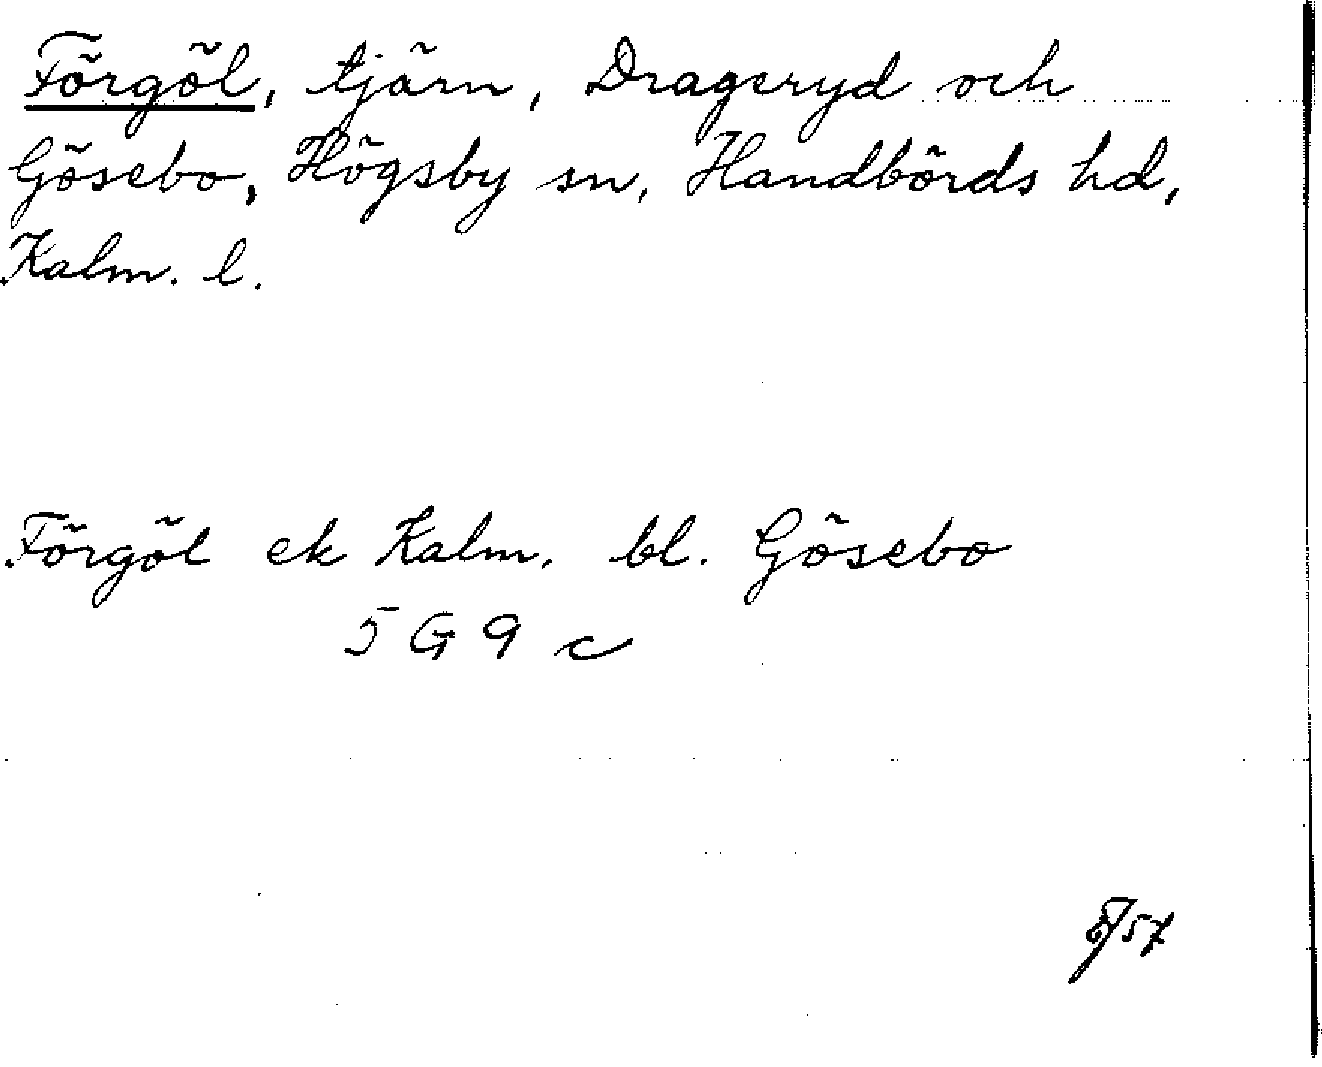 Förgöl, tjärn, Drageryd och
Gösebo, Högsby sn, Handbörds hd,
Kalm. l.
Förgöl ek Kalm. bl. Gösebo
5 G 9 c